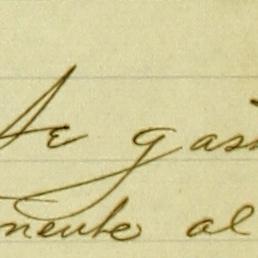 Se gas
mente al